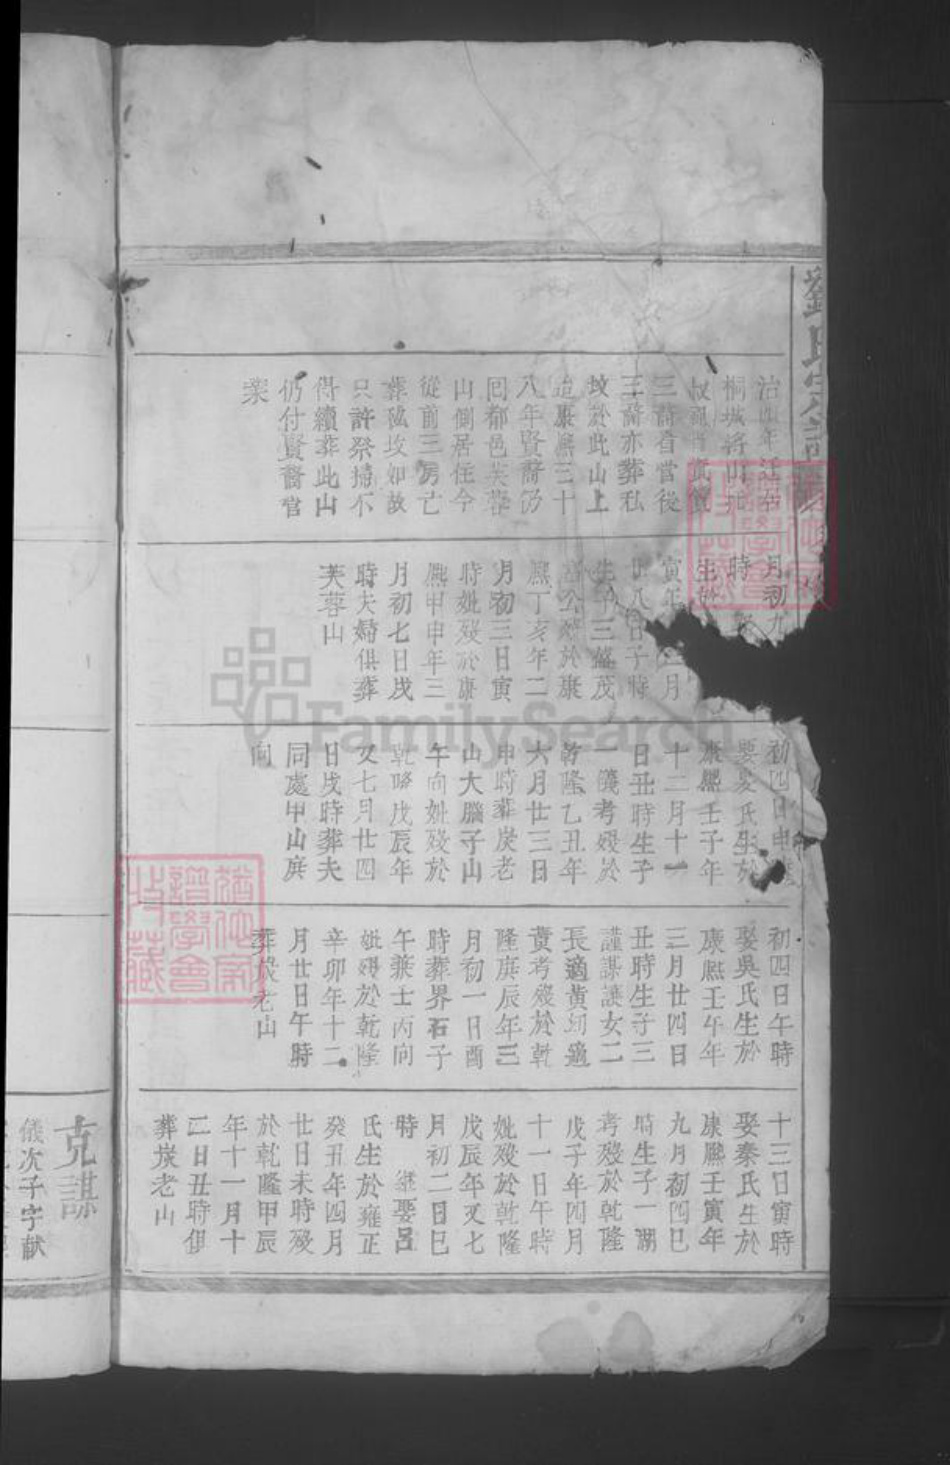 劉氏宗譜
桐城將山
三裔首當後
三裔亦葬私
坟於此山上
迨康熙三十
八年賢裔仍
回都邑芙蓉
山側居住今
從前三房亡
葬砿坟如故
只許祭掃不
得續葬此山
仍付賢裔官
業
月初九
時
寅年 月
廿八日子時
生子三盛茂
公殁於康
熙丁亥年二
月初三日寅
時妣殁於康
熙甲申年三
月初七日戌
時夫婦俱葬
芙蓉山
初四日申
娶夏氏生於
康熙壬子年
十二月十一
日丑時生子
一儀考殁於
乾隆乙丑年
六月廿三日
申時葬炭老
山大腦子山
午向妣殁於
乾隆戊辰年
又七月廿四
日戌時葬夫
同處甲山庚
向
初四日午時
娶吳氏生於
康熙壬午年
三月廿四日
丑時生子三
謹謀謨女二
長適黃次適
黃考殁於乾
隆庚辰年三
月初一日酉
時葬界石子
午兼壬丙向
妣殁於乾隆
辛卯年十二
月廿日午時
葬炭老山
十三日寅時
娶秦氏生於
康熙壬寅年
九月初四巳
時生子一潮
考殁於乾隆
戊子年四月
十一日午時
妣殁於乾隆
戊辰年又七
月初二日巳
時 繼娶呂
氏生於雍正
癸丑年四月
廿日未時殁
於乾隆甲辰
年十一月十
二日丑時俱
葬炭老山
克謀
儀次子字獻
FamilySearch